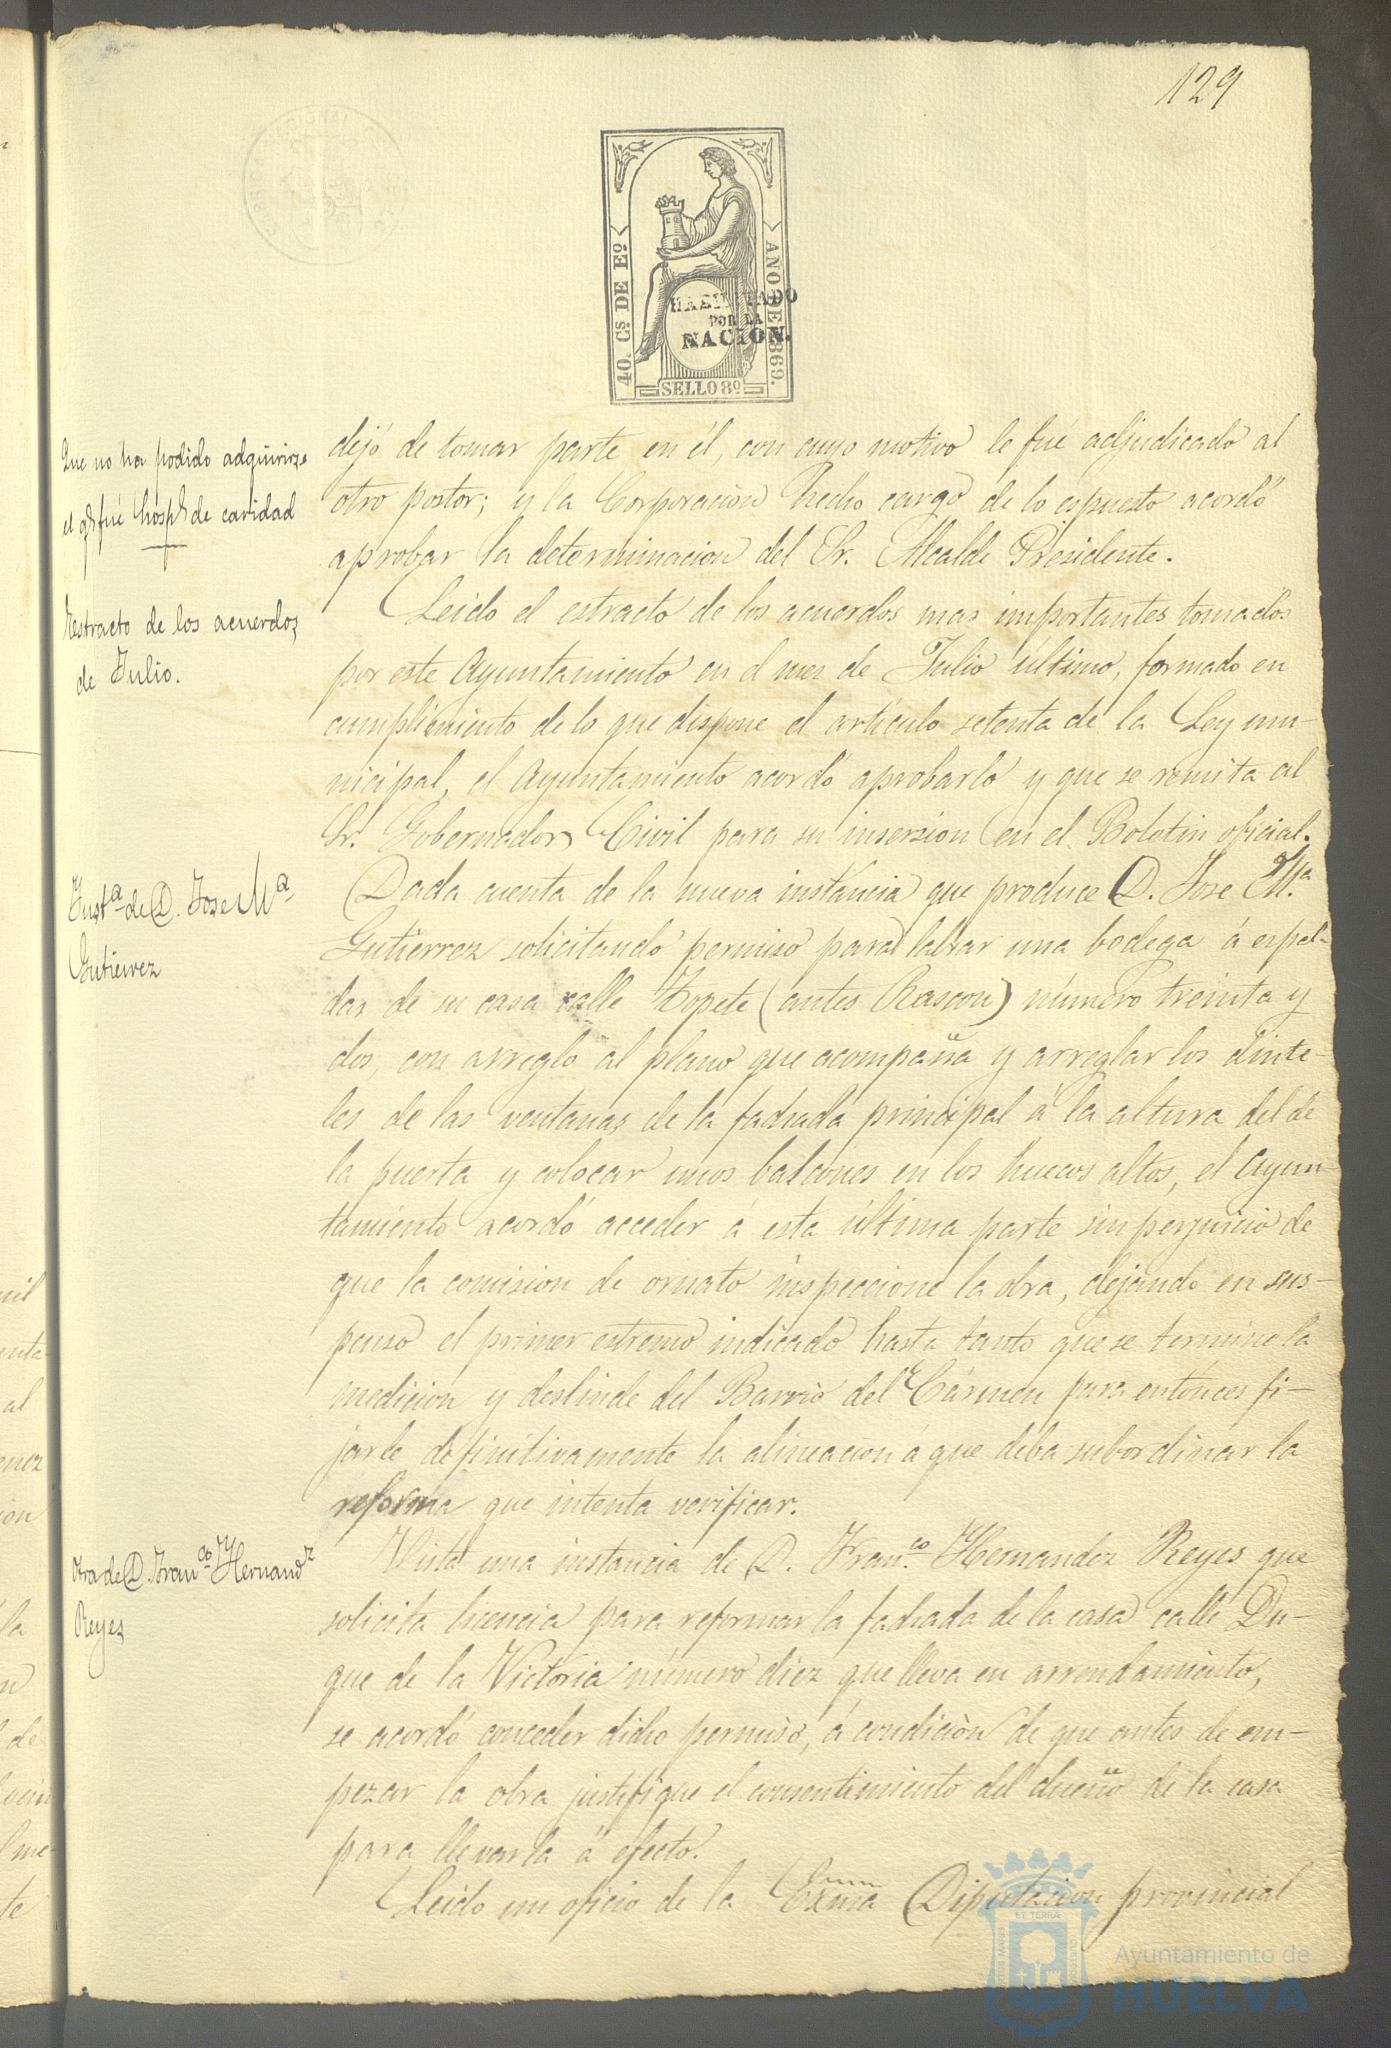 129
40. Cs. DE Eº.
AÑO DE 1869.
HABILITADO
POR LA
NACION.
SELLO 8º
Que no ha podido adquirirse
el q.e fué hosp.l de caridad
dejó de tomar parte en él, con cuyo motivo le fué adjudicado al
otro postor; y la Corporacion hecho cargo de lo espuesto acordó
aprobar la determinacion del Sr. Alcalde Presidente.
Estracto de los acuerdos
de Julio.
Leido el estracto de los acuerdos mas importantes tomados
por este Ayuntamiento en el mes de Julio último, formado en
cumplimiento de lo que dispone el artículo setenta de la Ley mu-
nicipal, el Ayuntamiento acordó aprobarlo y que se remita al
Sr. Gobernador Civil para su insercion en el Boletin oficial.
Inst.a de D. Jose M.a
Gutierrez
Dada cuenta de la nueva instancia que produce D. Jose M.a
Gutierrez solicitando permiso para labrar una bodega á espal-
das de su casa calle Topete (antes Rascon) número treinta y
dos, con arreglo al plano que acompaña y arreglar los dinte-
les de las ventanas de la fachada principal á la altura del de
la puerta y colocar unos balcones en los huecos altos, el Ayun-
tamiento acordó acceder á esta última parte sin perjuicio de
que la comision de ornato inspeccione la obra, dejando en sus-
penso el primer estremo indicado hasta tanto que se termine la
medicion y deslinde del Barrio del Cármen para entónces fi-
jarle definitivamente la alineacion á que deba subordinar la
reforma que intenta verificar.
Otra de D. Fran.co Hernand.z
Reyes
Vista una instancia de D. Fran.co Hernandez Reyes que
solicita licencia para reformar la fachada de la casa calle Du-
que de la Victoria número diez que lleva en arrendamiento,
se acordó conceder dicho permiso, á condicion de que antes de em-
pezar la obra justifique el consentimiento del dueño de la casa
para llevarla á efecto.
Leido un oficio de la Exma Diputacion provincial
Ayuntamiento de
HUELVA